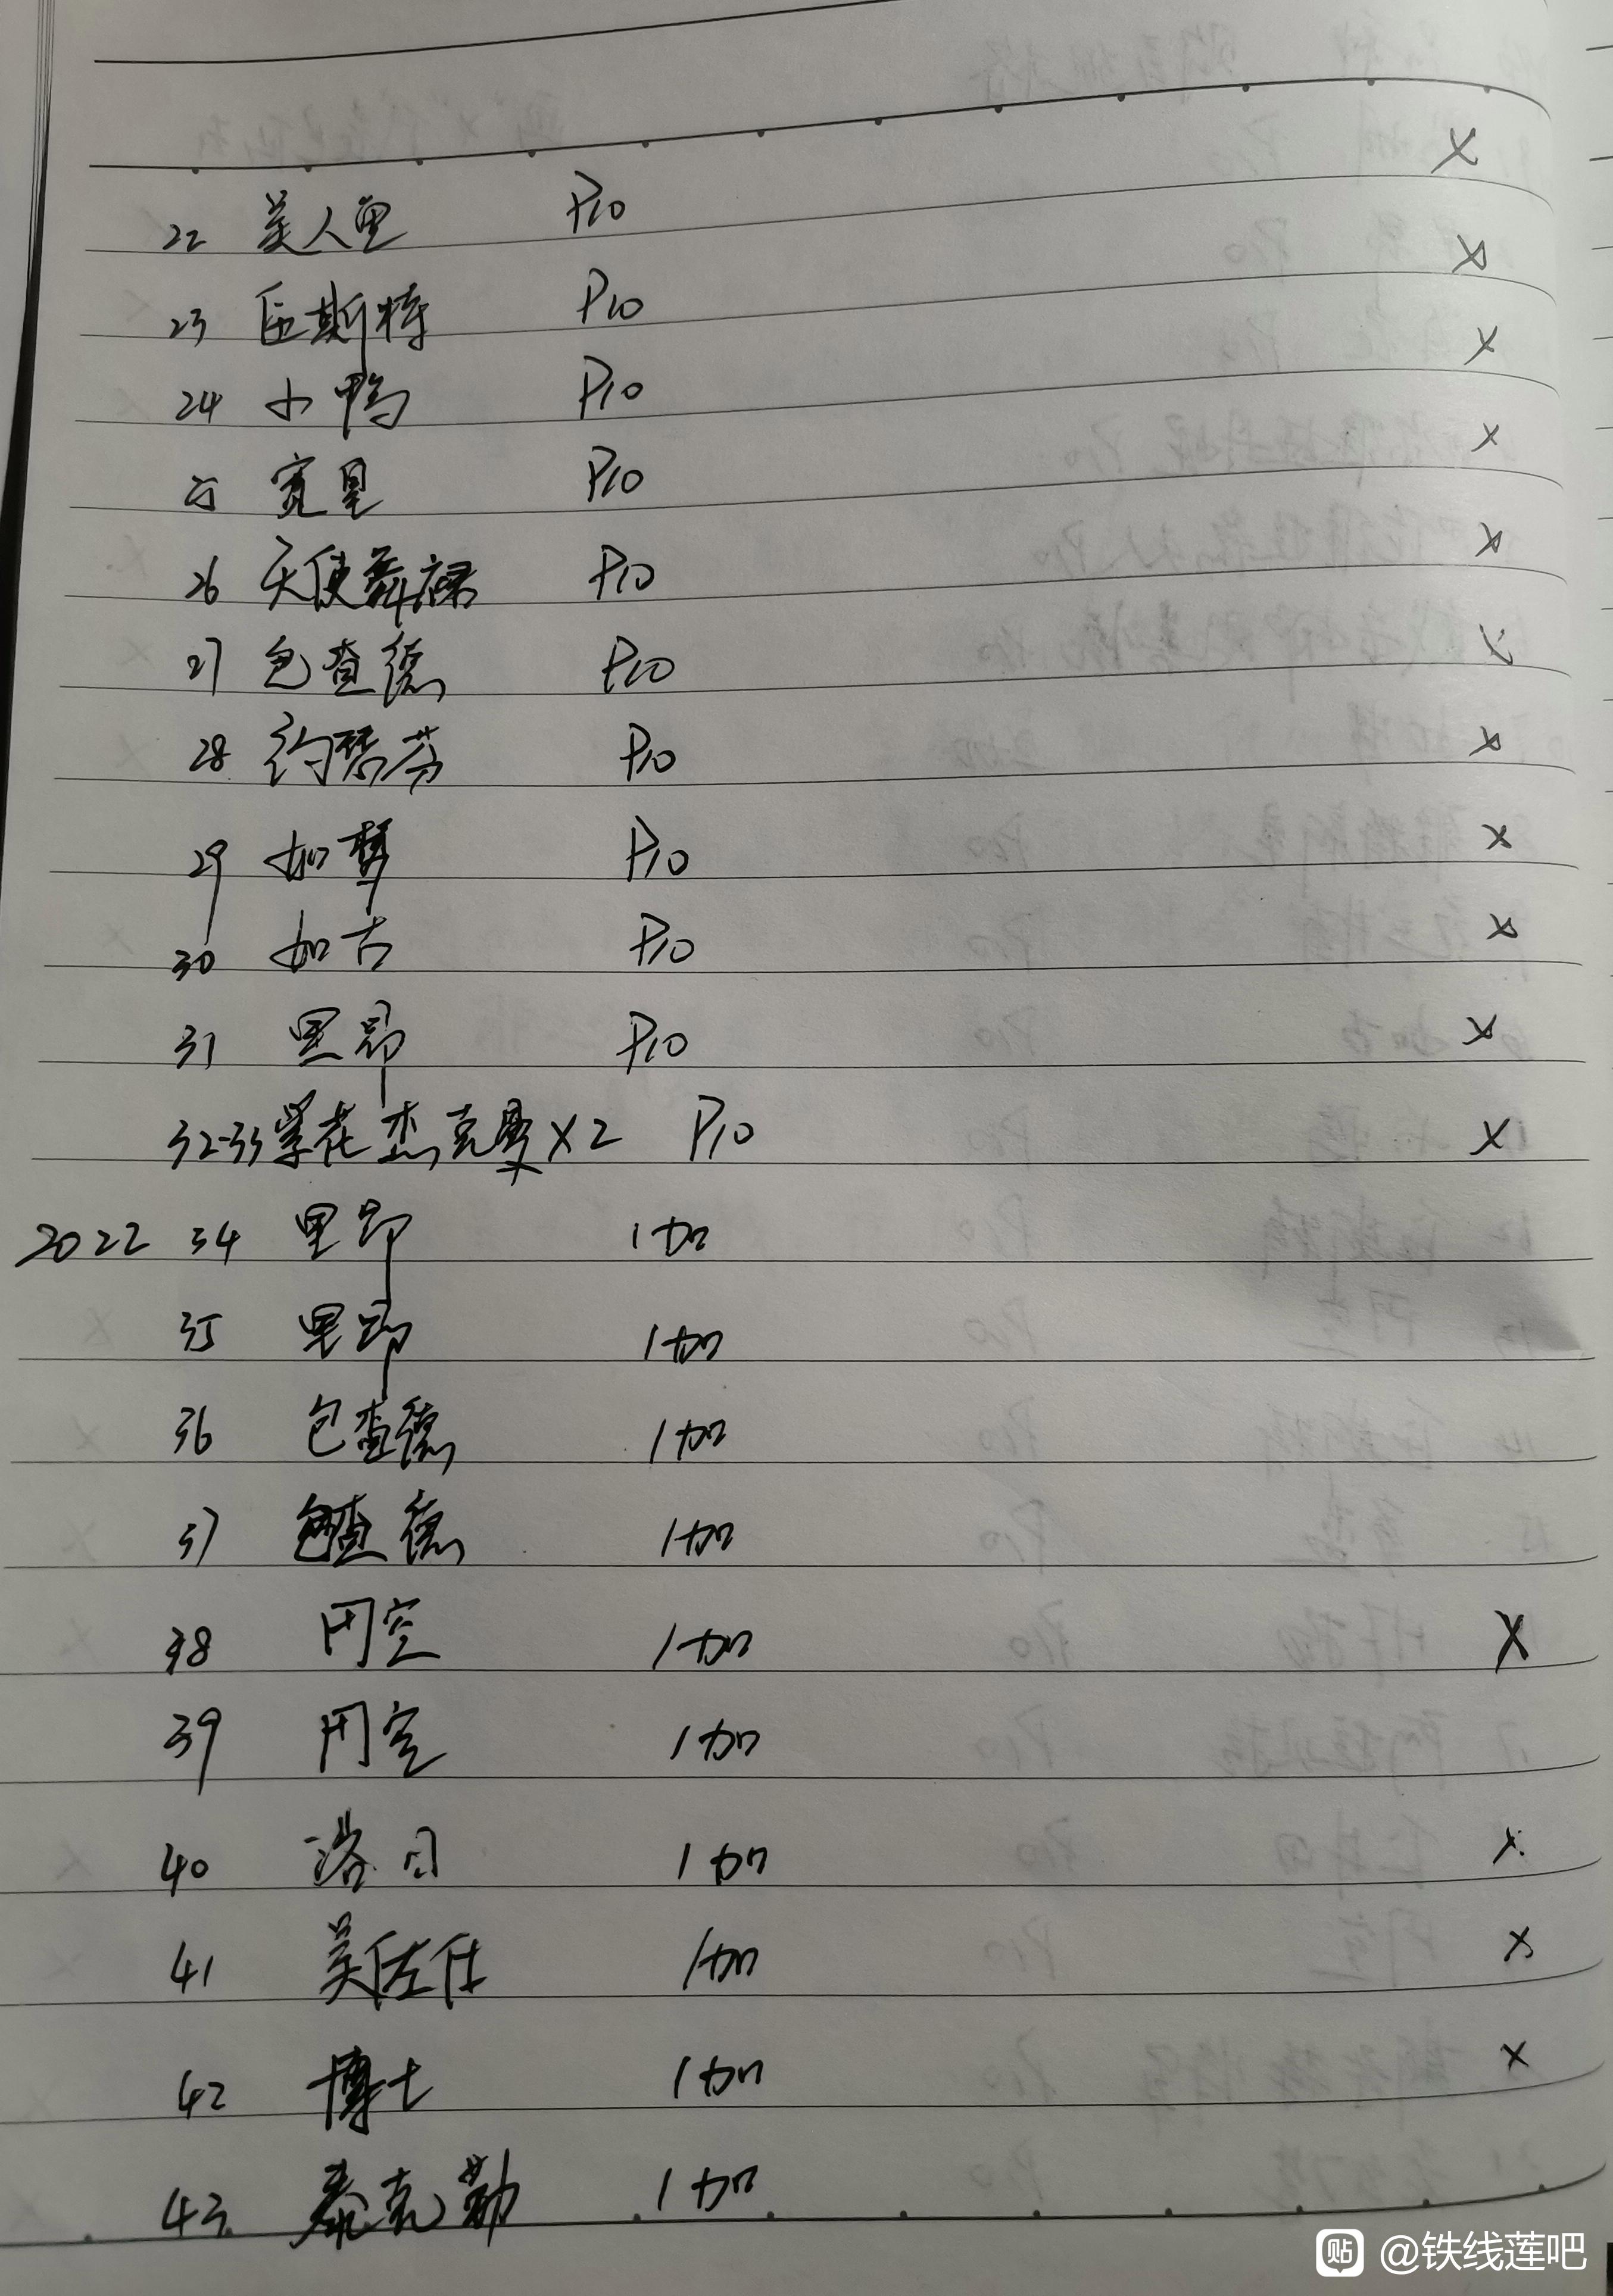 22 美人鱼 P10 X
23 伍斯特 P10 X
24 小鸭 P10 X
25 宽里 P10 X
26 天使舞裙 P10 X
27 包查德 P10 X
28 约瑟芬 P10 X
29 如梦 P10 X
30 如古 P10 X
31 里昂 P10 X
32-33 紫花杰克曼X2 P10 X
2022 34 里昂 1加
35 里昂 1加
36 包查德 1加
37 包查德 1加
38 円空 1加 X
39 円空 1加
40 洛日 1加 X
41 美佐仕 1加 X
42 博士 1加 X
43 泰克勒 1加
贴 @铁线莲吧